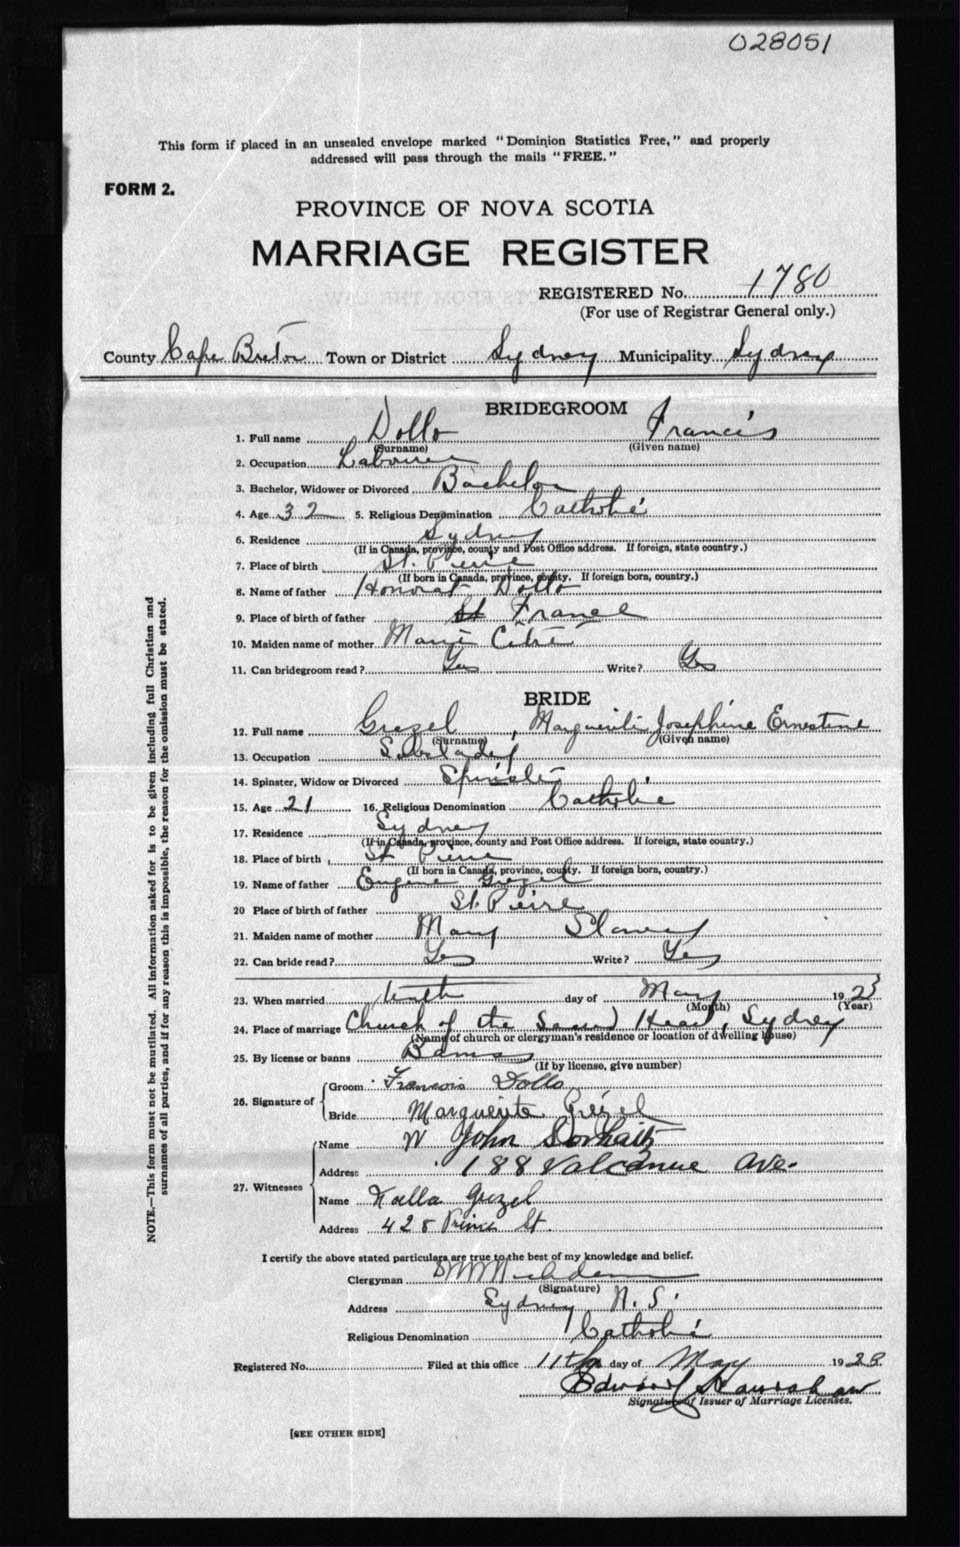 028051
This form if placed in an unsealed envelope marked "Dominion Statistics Free," and properly
addressed will pass through the mails "FREE."
FORM 2.
PROVINCE OF NOVA SCOTIA
MARRIAGE REGISTER
REGISTERED No. 1780
(For use of Registrar General only.)
County Cape Breton Town or District Sydney Municipality Sydney
BRIDEGROOM
1. Full name Dollo Francis
(Surname) (Given name)
2. Occupation Labourer
3. Bachelor, Widower or Divorced Bachelor
4. Age 32 5. Religious Denomination Catholic
6. Residence Sydney
(If in Canada, province, county and Post Office address. If foreign, state country.)
7. Place of birth St. Pierre
(If born in Canada, province, county. If foreign born, country.)
8. Name of father Honorat Dollo
9. Place of birth of father France
10. Maiden name of mother Marie
11. Can bridegroom read? Yes Write? Yes
BRIDE
12. Full name Grezel, Marguerite Josephine Ernestine
(Surname) (Given name)
13. Occupation Saleslady
14. Spinster, Widow or Divorced Spinster
15. Age 21 16. Religious Denomination Catholic
17. Residence Sydney
(If in Canada, province, county and Post Office address. If foreign, state country.)
18. Place of birth St Pierre
(If born in Canada, province, county. If foreign born, country.)
19. Name of father Eugene Grezel
20 Place of birth of father St. Pierre
21. Maiden name of mother Mary Slaney
22. Can bride read? Yes Write? Yes
23. When married tenth day of May 1923
(Month) (Year)
24. Place of marriage Church of the Sacred Heart, Sydney
(Name of church or clergyman's residence or location of dwelling house)
25. By license or banns Banns
(If by license, give number)
26. Signature of
Groom Francois Dollo
Bride Marguerite Grézel
27. Witnesses
Name W John
Address 188 Ave.
Name Grezel
Address 428 Prince St.
I certify the above stated particulars are true to the best of my knowledge and belief.
Clergyman
(Signature)
Address Sydney N.S.
Religious Denomination Catholic
Registered No. Filed at this office 11th day of May 1923.
Edward
Signature of Issuer of Marriage Licenses.
[SEE OTHER SIDE]
NOTE.—This form must not be mutilated. All information asked for is to be given including full Christian and
surnames of all parties, and if for any reason this is impossible, the reason for the omission must be stated.